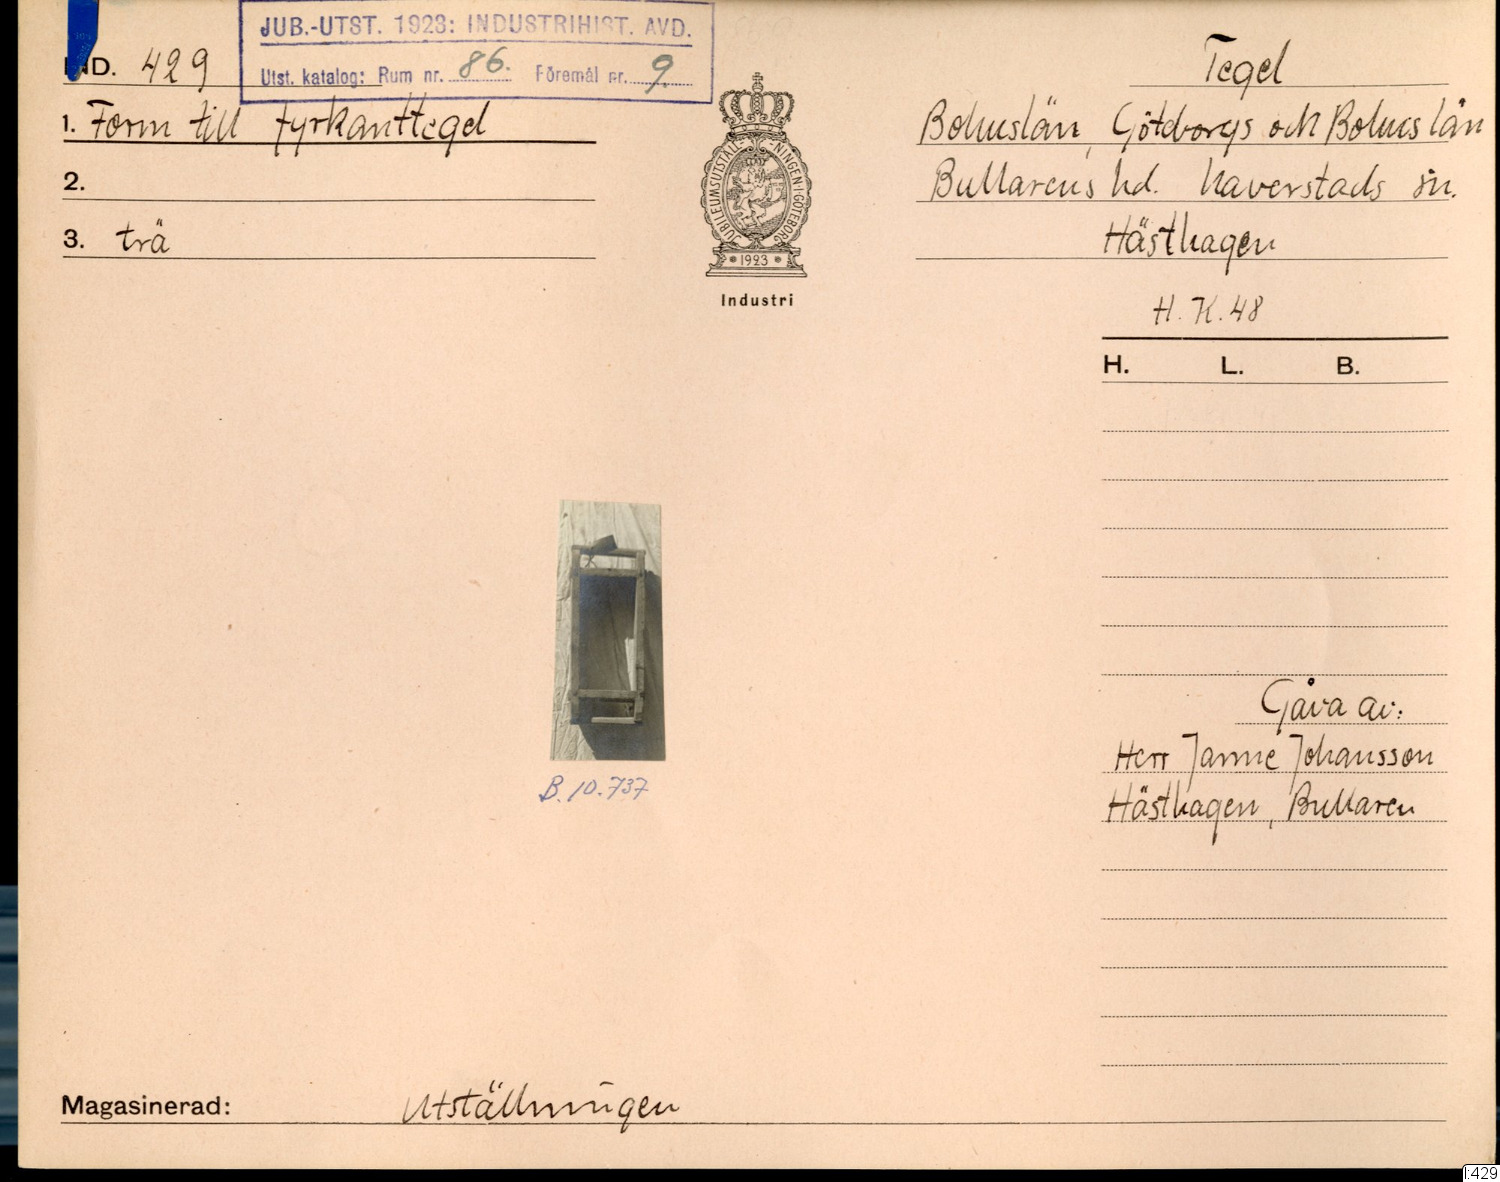 JUB.-UTST. 1923: INDUSTRIHIST. AVD.
Utst. katalog: Rum nr. 86. Föremål nr. 9.
IND. 429
1. Form till fyrkanttegel
2.
3. trä
JUBILEUMSUTSTÄLLNINGEN·I·GÖTEBORG
1923
Industri
Tegel
Bohuslän, Göteborgs och Bohus län
Bullarens hd. Naverstads sn.
Hästhagen
H. K. 48
H. L. B.
B. 10.737
Gåva av:
Herr Janne Johansson
Hästhagen, Bullaren
Magasinerad: Utställningen
I:429